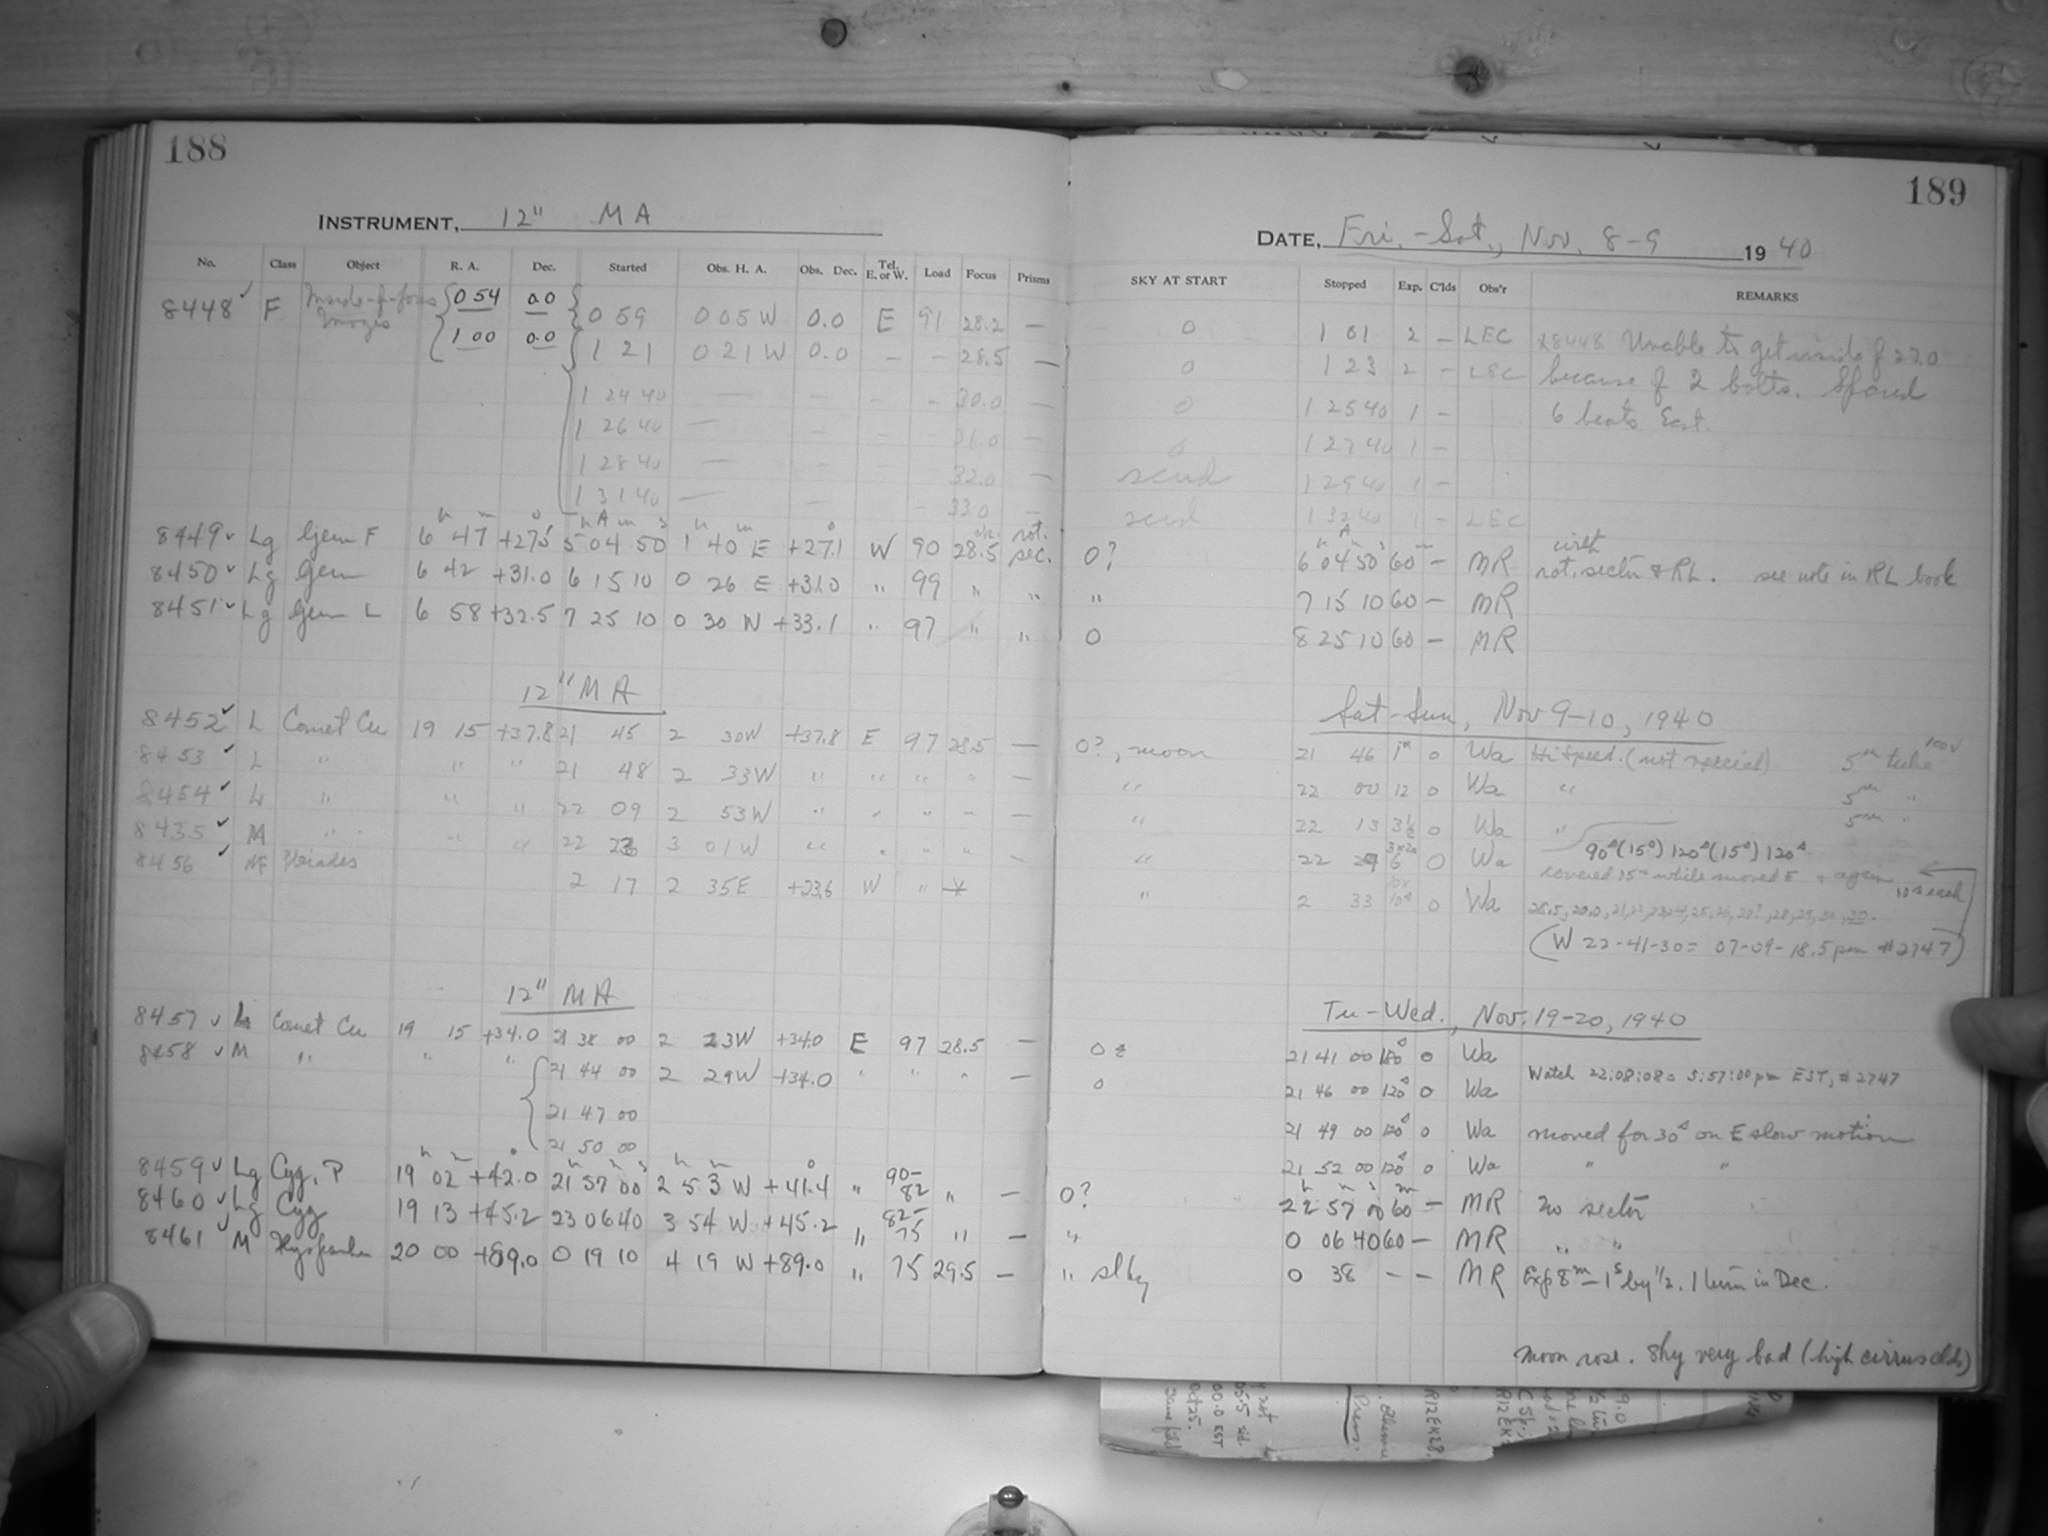 188
INSTRUMENT, 12" MA
No. Class Object R. A. Dec. Started Obs. H. A. Obs. Dec. Tel. E. or W. Load Focus Prisms
8448 F Inside-of-focus Images 0 54 0.0 0 59 0 05 W 0.0 E 91 28.2 —
1 00 0.0 1 21 0 21 W 0.0 — - 28.5 —
1 24 40 — - - - 30.0 —
1 26 40 — - - 31.0 —
1 28 40 — - - 32.0 —
1 31 40 — - - 33.0 —
8449 Lg Gem F 6h 47m +27.5° 5h 04m 50s 1h 40m E +27.1° W 90 28.5 rot. sec.
8450 Lg Gem 6 42 +31.0 6 15 10 0 26 E +31.0 " 99 " "
8451 Lg Gem L 6 58 +32.5 7 25 10 0 30 W +33.1 " 97 " "
12" MA
8452 L Comet Cu 19 15 +37.8 21 45 2 30W +37.8 E 97 28.5 —
8453 L " " " 21 48 2 33W " " " " —
8454 L " " " 22 09 2 53W " " " " —
8455 M " " " 22 23 3 01W " " " " —
8456 MF Pleiades 2 17 2 35E +23.6 W " *
12" MA
8457 L Comet Cu 19 15 +34.0 21 38 00 2 23W +34.0 E 97 28.5 —
8458 M " " " 21 44 00 2 29W +34.0 " " " —
21 47 00
21 50 00
8459 Lg Cyg. P 19h 02m +42.0° 21h 57m 00s 2h 53m W +41.4° " 90-82 " —
8460 Lg Cyg 19 13 +45.2 23 06 40 3 54 W +45.2 " 82-75 " —
8461 M 20 00 +89.0 0 19 10 4 19 W +89.0 " 75 29.5 —
189
DATE, Fri.-Sat., Nov. 8-9 1940
SKY AT START Stopped Exp. C'lds Obs'r REMARKS
0 1 01 2 — LEC x8448 Unable to get inside of 27.0
0 1 23 2 - LEC because of 2 bolts. Spaced
0 1 25 40 1 - 6 beats East.
0 1 27 40 1 -
scud 1 29 40 1 -
scud 1 32 40 1 - LEC
0? 6h 04m 50s 60m — MR with rot. sector & RL. see note in RL book
" 7 15 10 60 — MR
0 8 25 10 60 — MR
Sat-Sun, Nov 9-10, 1940
0?, moon 21 46 1m 0 Wa Hi Speed. (not special) 5m tube 100v
" 22 00 12 0 Wa " 5m "
" 22 13 3½ 0 Wa " 5m "
" 22 29 6 0 Wa 90s (15s) 120s (15s) 120s
covered 15s while moved E & again
" 2 33 10s 0 Wa 10s each
(W 22-41-30 = 07-09-18.5 pm #2747)
Tu-Wed., Nov. 19-20, 1940
0 21 41 00 180s 0 Wa
Watch 22:08:08 = 5:57:00 pm EST, #2747
0 21 46 00 120s 0 Wa
21 49 00 120s 0 Wa moved for 30s on E slow motion
21 52 00 120s 0 Wa " "
0? 22h 57m 00s 60m — MR no sector
" 0 06 40 60 — MR " "
" slky 0 38 — — MR Exp 8m — 1s by ½. 1 turn in Dec.
moon rose. sky very bad (high cirrus clds)